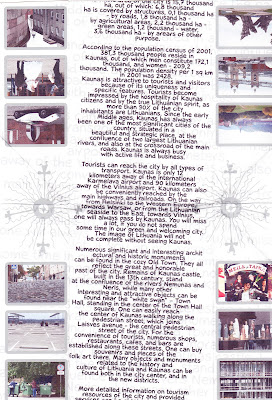 of the city is 15,7 thousand
ha, out of which 6,8 thousand
ha is covered by structures, 0,1 thousand ha
- by roads, 1,8 thousand ha -
by agricultural areas, 2,2 thousand ha -
green areas, 1,2 thousand - water,
3,6 thousand ha - by arears of other
purpose.
According to the population census of 2001,
381,3 thousand people reside in
Kaunas, out of which men constitute 172,1
thousand, and women - 209,2
thousand. The population density per 1 sq km
in 2001 was 2428.
Kaunas is attractive to tourists and visitors
because of its uniqueness and
specific features. Tourists become
impressed by the hospitality of Kaunas
citizens and by the true Lithuanian spirit, as
more than 90% of the city
inhabitants are Lithuanians. Since the early
Middle ages, Kaunas has always
been one of the most significant cities of the
country, situated in a
beautiful and strategic place, at the
confluence of two largest Lithuanian
rivers, and also at the crossroad of the main
roads. Kaunas is always busy
with active life and business.
Tourists can reach the city by all types of
transport. Kaunas is only 12
kilometers away of the international
Karmelava airport and 90 kilometers
away of the Vilnius airport. Kaunas can also
be conveniently reached by the
main highways and railroads. On the way
from Helsinki to the Western Europe,
towards Warsaw, or from the Lithuanian
seaside to the East, towards Vilnius,
one will always pass by Kaunas. You will miss
a lot, if you do not spend
some time in our green and welcoming city.
The image of Lithuania will not
be complete without seeing Kaunas.
Numerous significant and interesting archit
ectural and historic monuments
can be found in the cozy Old Town. They all
reflect the great and honorable
past of the city. Remains of Kaunas castle,
built in the 13th century, stand
at the confluence of the rivers Nemunas and
Neris, while many other
interesting and attractive objects can be
found near the "white swan" - Town
Hall, standing in the center of the Town Hall
square. One can easily reach
the center of Kaunas walking along the
pedestrian street, which joins
Laisves avenue - the central pedestrian
street of the city. For the
convenience of tourists, numerous shops,
restaurants, cafes, and bars are
established along these streets. One can buy
souvenirs and pieces of the
folk art there. Many objects and monuments
related to the history and
culture of Lithuania and Kaunas can be
found both in the city center, and in
the new districts.
More detailed information on tourism
resources of the city and provided